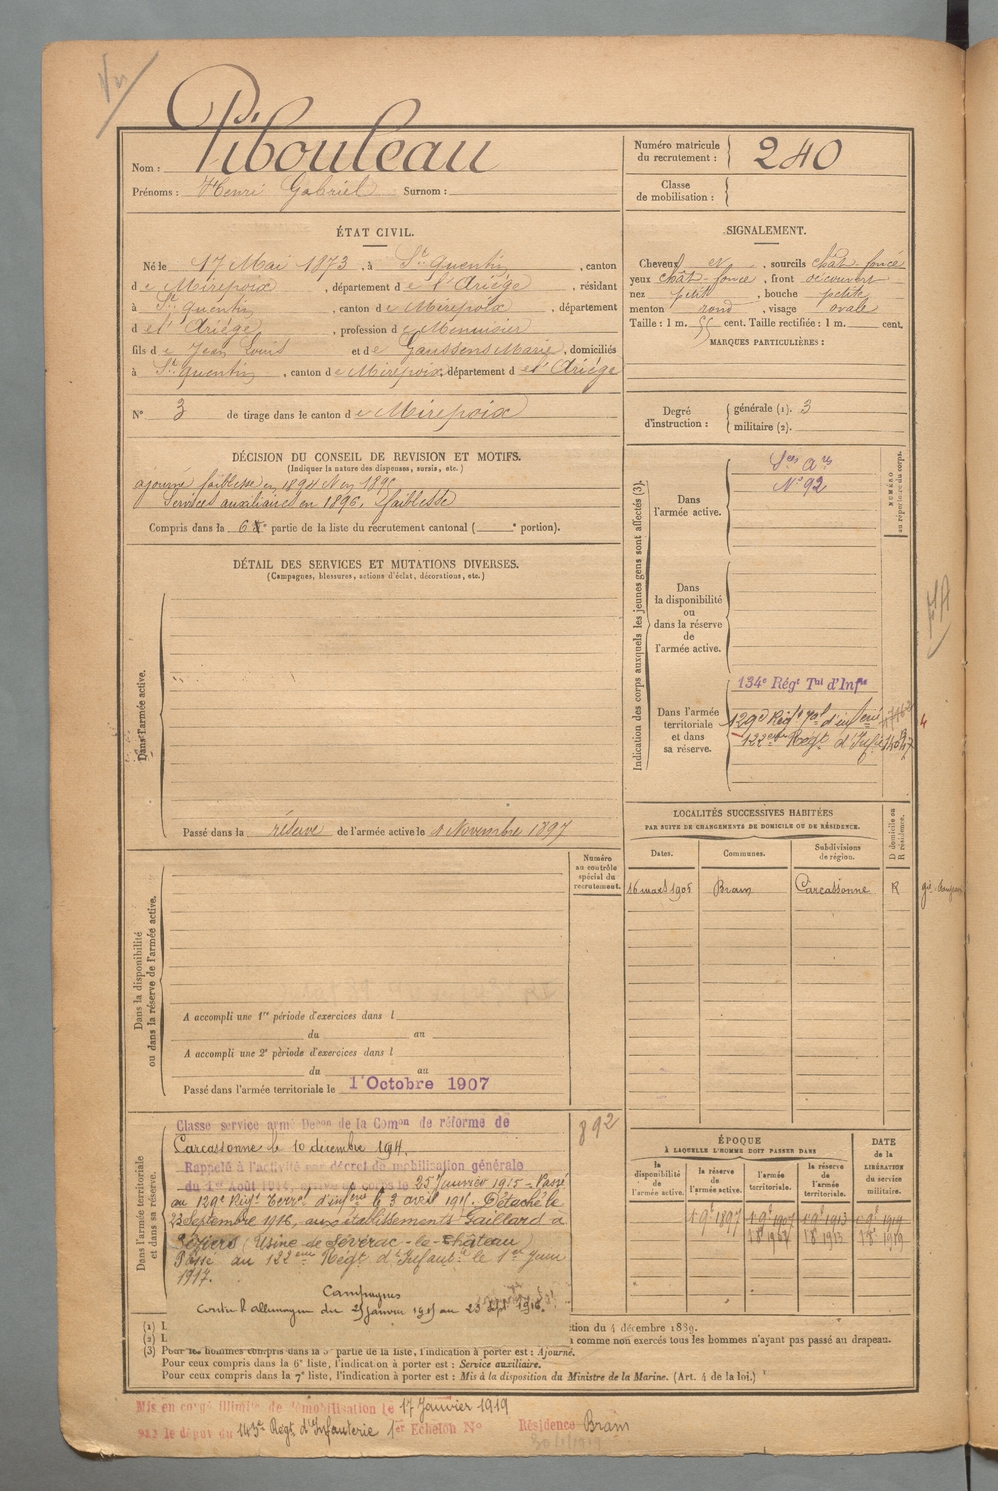 Nom : Pibouleau
Prénoms : Henri Gabriel Surnom :
Numéro matricule du recrutement : 240
Classe de mobilisation :
ÉTAT CIVIL.
Né le 17 Mai 1873, à St Quentin, canton
de Mirepoix, département de l'Ariège, résidant
à St Quentin, canton de Mirepoix, département
de l'Ariège, profession de Menuisier
fils de Jean Louis et de Gaussens Marie, domiciliés
à St Quentin, canton de Mirepoix, département de l'Ariège
N° 3 de tirage dans le canton de Mirepoix
SIGNALEMENT.
Cheveux et, sourcils chât-foncé
yeux chât-foncé, front découvert
nez petit, bouche petite
menton rond, visage ovale
Taille : 1 m. 55 cent. Taille rectifiée : 1 m. cent.
MARQUES PARTICULIÈRES :
Degré d'instruction : générale (1). 3
militaire (2).
DÉCISION DU CONSEIL DE REVISION ET MOTIFS.
(Indiquer la nature des dispenses, sursis, etc.)
ajourné faiblesse en 1894 et en 1895
Services auxiliaires en 1896, faiblesse
Compris dans la 6e partie de la liste du recrutement cantonal ( e portion).
DÉTAIL DES SERVICES ET MUTATIONS DIVERSES.
(Campagnes, blessures, actions d'éclat, décorations, etc.)
Dans l'armée active.
Passé dans la réserve de l'armée active le 1 Novembre 1897
Indication des corps auxquels les jeunes gens sont affectés (3).
NUMÉRO au répertoire du corps.
Dans l'armée active.
Ses Ares
N° 92
Dans la disponibilité ou dans la réserve de l'armée active.
Dans l'armée territoriale et dans sa réserve.
134e Régt Tal d'Infie
129e Régt Tal d'inferie
122ème Régt d'Infie
LOCALITÉS SUCCESSIVES HABITÉES
PAR SUITE DE CHANGEMENTS DE DOMICILE OU DE RÉSIDENCE.
Dates. Communes. Subdivisions de région. D domicile ou R résidence.
16 mars 1905 Bram Carcassonne R
Numéro au contrôle spécial du recrutement.
Dans la disponibilité ou dans la réserve de l'armée active.
A accompli une 1re période d'exercices dans l
du au
A accompli une 2e période d'exercices dans l
du au
Passé dans l'armée territoriale le 1 Octobre 1907
Dans l'armée territoriale et dans sa réserve.
892
Classe service armé Décon de la Comon de réforme de
Carcassonne le 10 decembre 1914.
Rappelé à l'activité par décret de mobilisation générale
du 1er Août 1914, arrivé au corps le 25 Janvier 1915 - Passé
au 129e Régt Terral d'inferie le 3 avril 1915. Détaché le
23 Septembre 1916, aux établissements Gaillard à
Béziers (Usine de Sévérac-le-Château)
Passé au 122ème Régt d'Infantie le 1er Juin
1917.
Campagnes
Contre l'allemagne du 25 janvier 1915 au 23 sept 1916.
ÉPOQUE
A LAQUELLE L'HOMME DOIT PASSER DANS
la disponibilité de l'armée active. la réserve de l'armée active. l'armée territoriale. la réserve de l'armée territoriale.
DATE de la LIBÉRATION du service militaire.
(1) I.
(2) I.
tion du 4 décembre 1889.
comme non exercés tous les hommes n'ayant pas passé au drapeau.
(3) Pour les hommes compris dans la 5e partie de la liste, l'indication à porter est : Ajourné.
Pour ceux compris dans la 6e liste, l'indication à porter est : Service auxiliaire.
Pour ceux compris dans la 7e liste, l'indication à porter est : Mis à la disposition du Ministre de la Marine. (Art. 4 de la loi.)
Mis en congé illimité de démobilisation le 17 Janvier 1919
par le dépôt du 143e Régt d'Infanterie 1er Echelon N° Résidence Bram